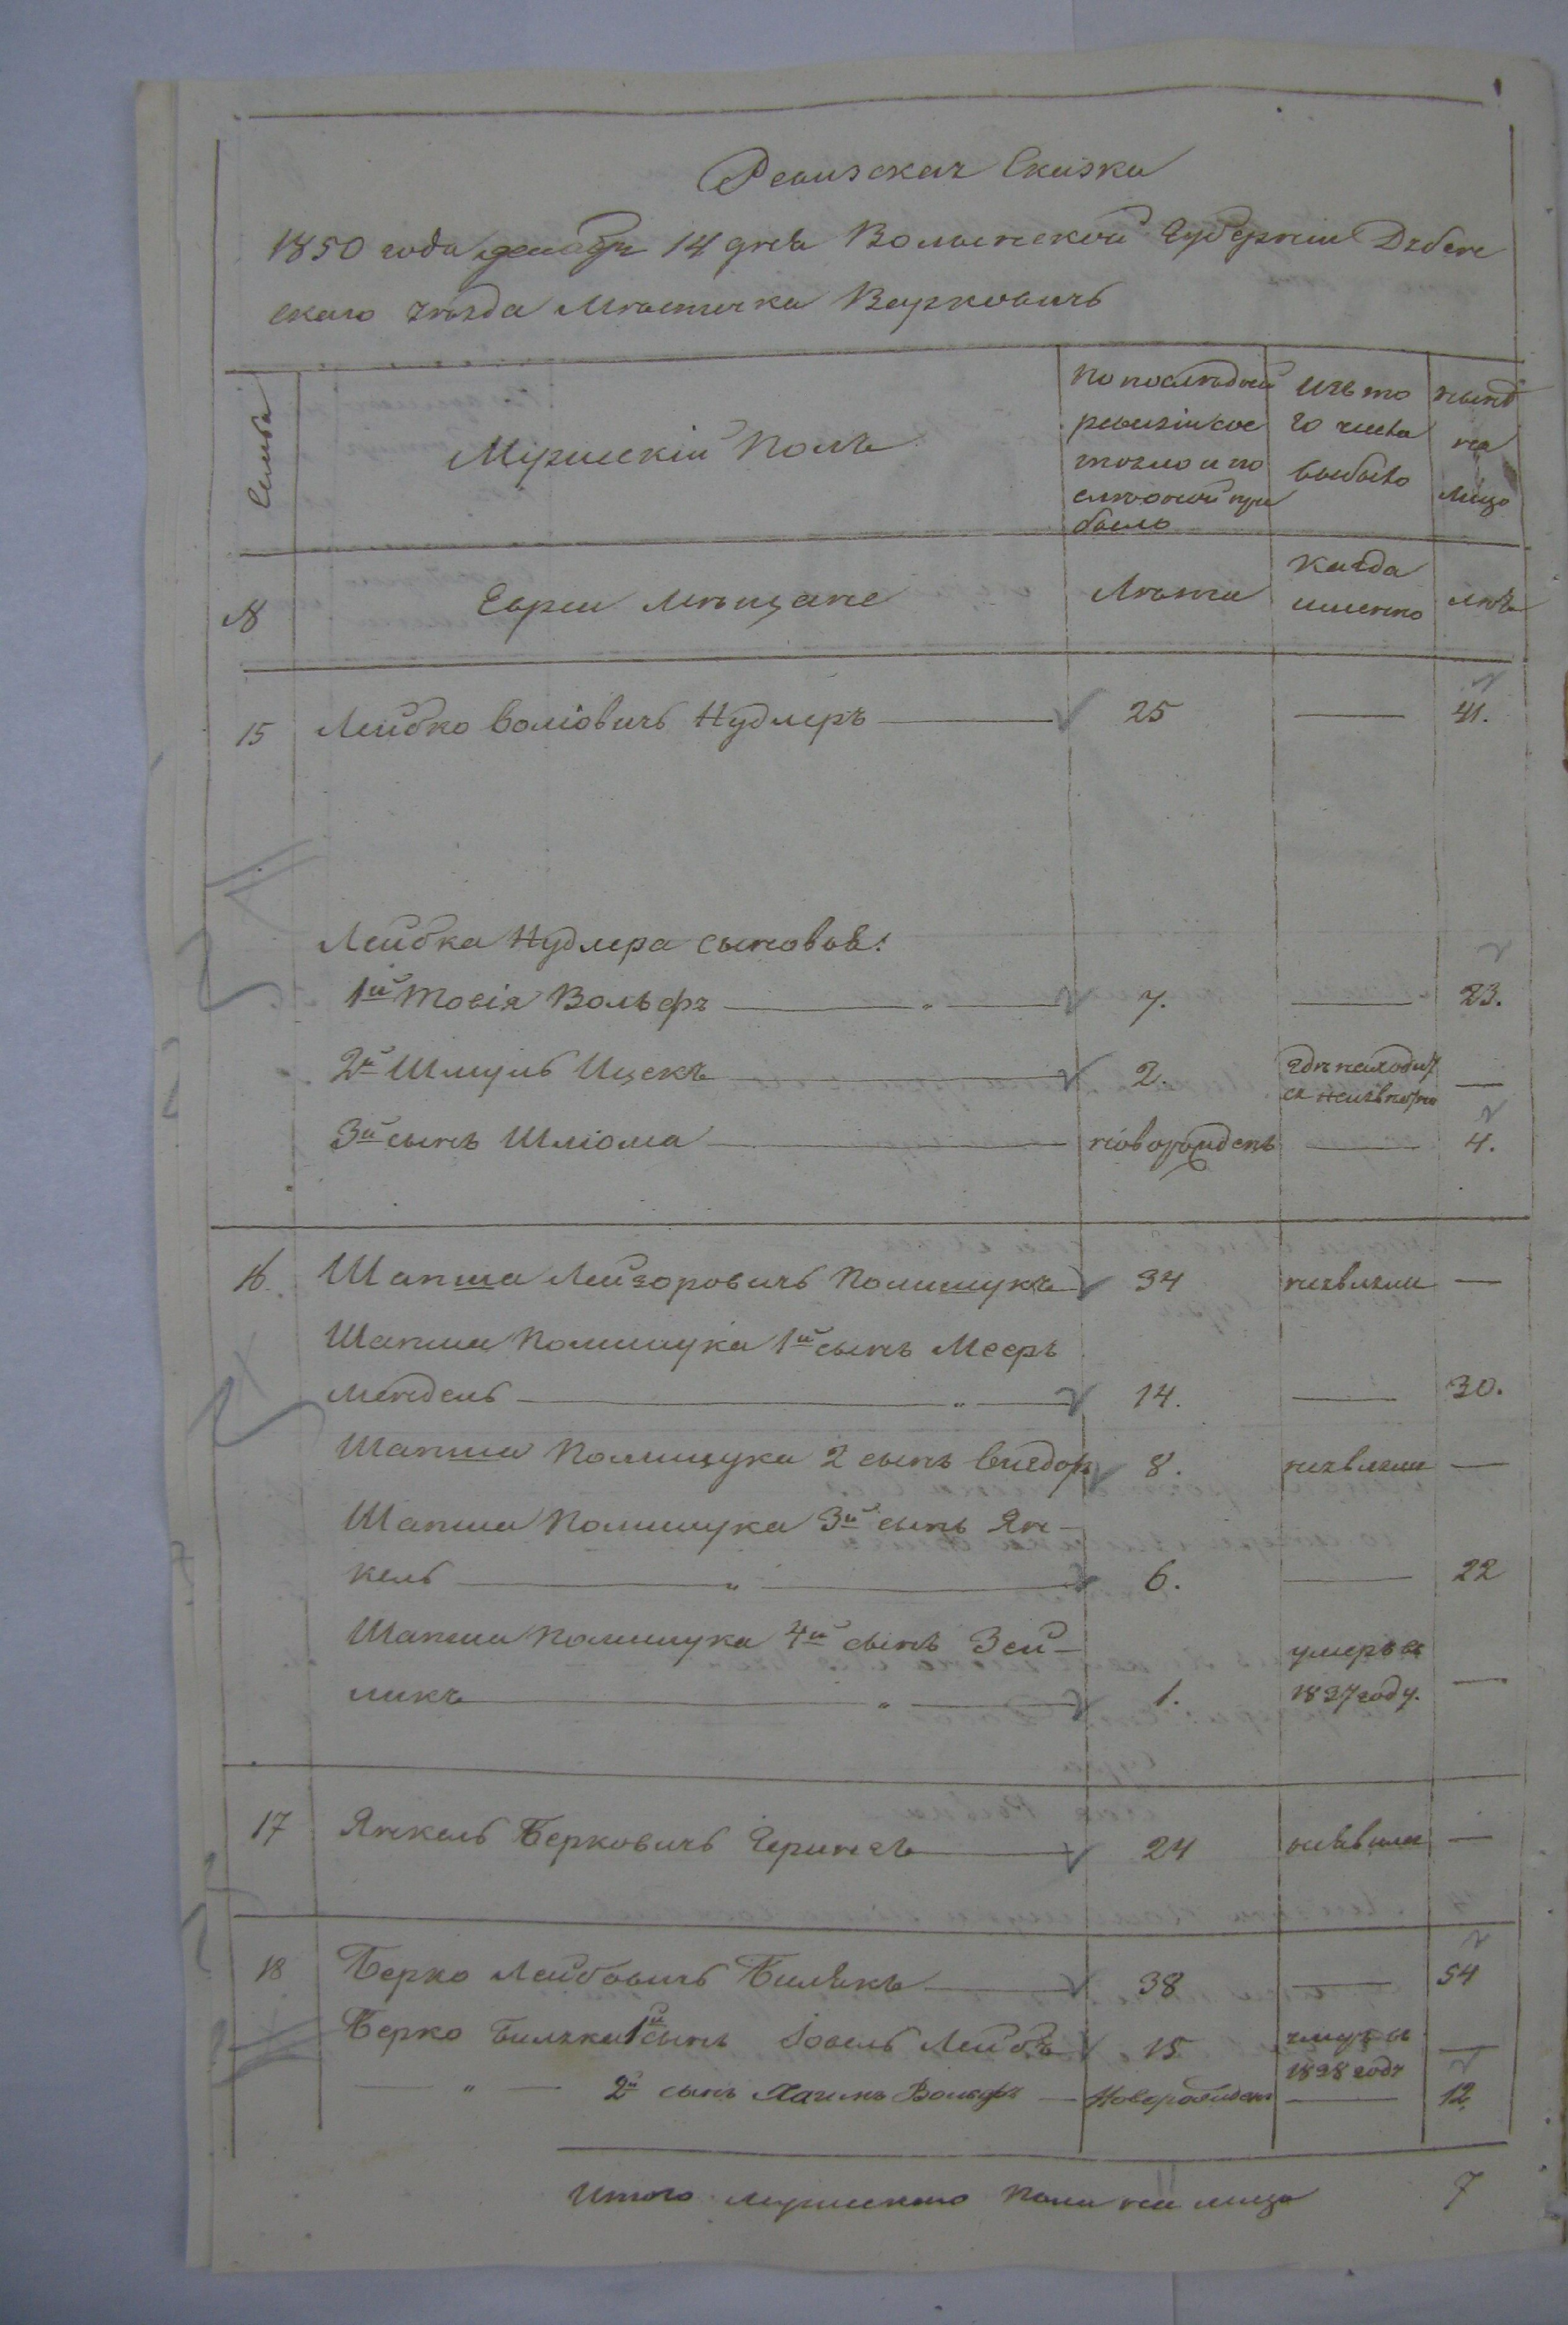 Ревизская Сказка
1850 года декабря 14 дня Волынской Губерніи Дубен
скаго уѣзда Мѣстечка Варковичь
Семьи
Мужескій Полъ
По послѣдней
ревизіи сос
тояло и по
слѣ оной при
было
Изъ то
го числа
выбыло
Нынѣ
на
лицо
№
Евреи Мѣщане
Лѣта
Когда
именно
Лѣта
15 Лейбко Воліовичь Нудлеръ 25 — 41.
Лейбка Нудлера сыновья:
1й Товія Вольфъ " 7. — 23.
2й Шмуль Ицекъ 2. гдѣ находит
ся неизвѣстно —
3й сынъ Шліома новорожденъ — 4.
16. Шапша Лейзоровичь Полишукъ 34 неявлен —
Шапши Полишука 1й сынъ Мееръ
Мендель " 14. — 30.
Шапши Полищука 2 сынъ 8. неявлен —
Шапши Полишука 3й сынъ Ян-
кель " 6. — 22
Шапши Полишука 4й сынъ Зей-
ликъ " 1. умеръ въ
1837 году. —
17 Янкель Берковичь 24 неявлен —
18 Берко Лейбовичь Билякъ 38 — 54
Берко Биляка 1й сынъ Іовель Лейбъ 15 умеръ въ
1838 году —
— " — 2й сынъ Хаимъ Вольфъ — Новорожденъ — 12.
Итого мужескаго пола на лицо 7